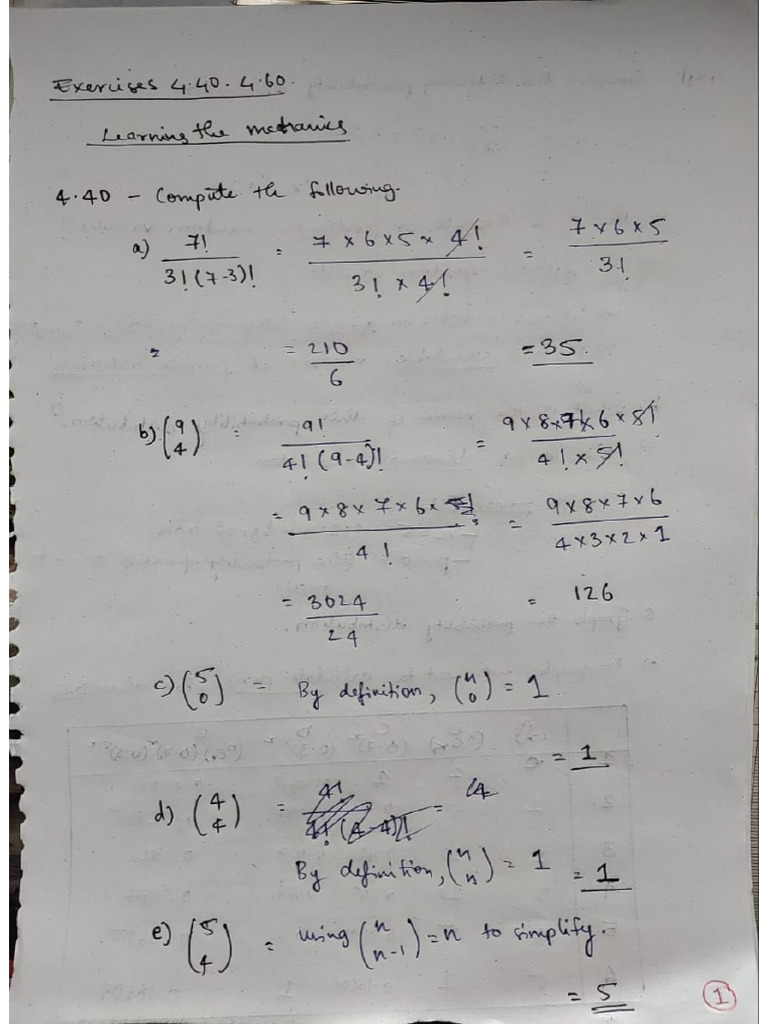 Exercises 4.40 - 4.60.
Learning the mechanics
4.40 - Compute the following.
a) 7! / 3!(7-3)! = 7 × 6 × 5 × 4! / 3! × 4! = 7 × 6 × 5 / 3!
= 210 / 6 = 35.
b) (9 4) = 9! / 4!(9-4)! = 9 × 8 × 7 × 6 × 5! / 4! × 5!
= 9 × 8 × 7 × 6 × / 4! = 9 × 8 × 7 × 6 / 4 × 3 × 2 × 1
= 3024 / 24 = 126
c) (5 0) = By definition, (n 0) = 1
= 1
d) (4 4) = 4! / 4!(4-4)! =
By definition, (n n) = 1 = 1
e) (5 4) = using (n n-1) = n to simplify.
= 5
1